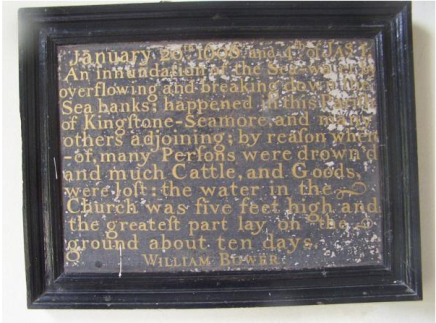 January 20th 1606 and 4th of JAS I.
An Innundation of the Sea
overflowing and breaking down the
Sea banks; happened in this Parish
of Kingſtone-Seamore, and many
others adjoining; by reaſon where
-of, many Perſons were drown'd
and much Cattle, and Goods,
were loſt: the water in the
Church was five feet high and
the greateſt part lay on the
ground about ten days.
WILLIAM BOWER